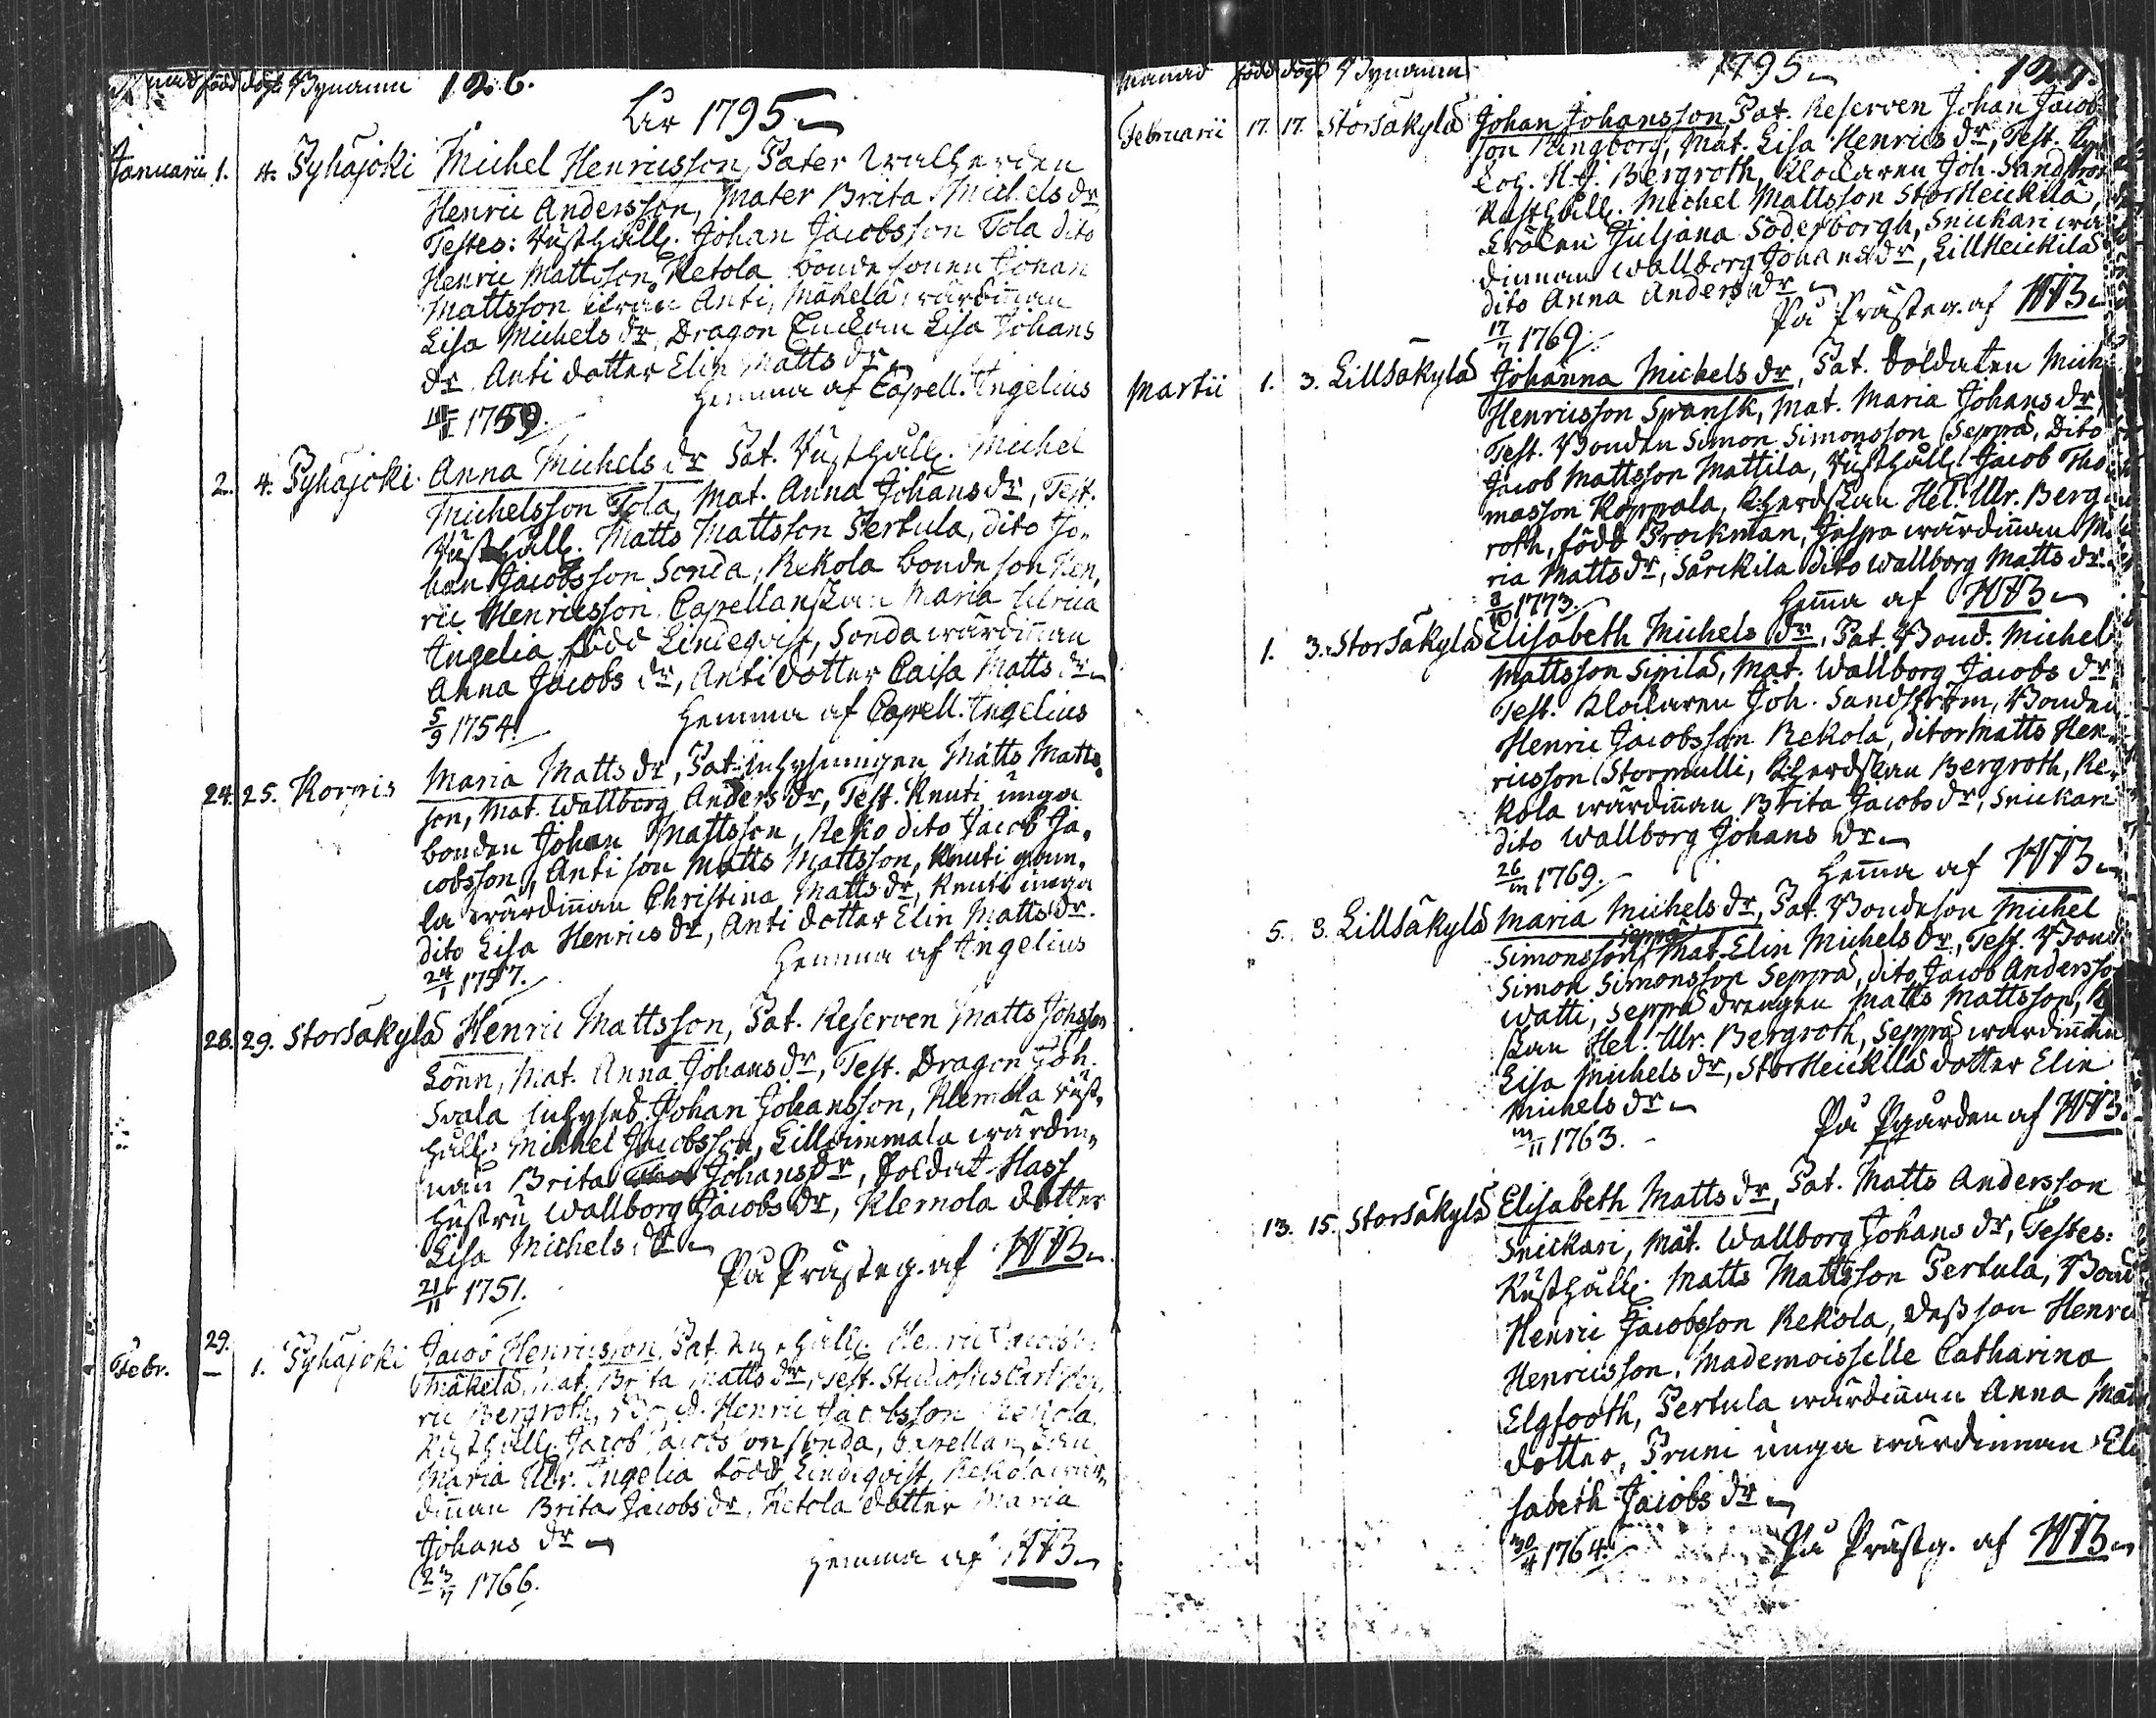 Månad född döpt Bynamn 126.
År 1795
Januarii 1. 4. Pyhäjoki Michel Henricsson, Pater
Henric Andersson, Mater Brita Michelsdr
Testes: Rusthåll. Johan Jacobsson Tola dito
Henric Mattsson Ketola bondesonen Johan
Mattsson Anti, Mäkelä wärdinnan
Lisa Michels dr, Dragon Enckan Lisa Johans
dr. Anti dotter Elin Matts dr
Hemma af Capell. Ingelius
1759.
2. 4. Pyhäjoki. Anna Michels dr Pat. Rusthåll. Michel
Michelsson Tola, Mat. Anna Johans dr, Test.
Rusthåll. Matts Mattsson Pertula, dito Jo-
han Jacobsson Sonda, Rekola bonde son Hen-
ric Henricsson. Capellanskan Maria Ulrica
Ingelia född Lindeqvist, Sonda wärdinnan
Anna Jacobs dr, Anti dotter Caisa Matts dr
5/9 1754. Hemma af Capell. Ingelius
24. 25. Korvis Maria Matts dr, Pat. Inhysningen Matts Matts-
son, Mat. Wallborg Anders dr, Test. Knuti unga
bonden Johan Mattsson, Keko dito Jacob Ja-
cobsson, Anti son Matts Mattsson, Knuti gam-
la wärdinnan Christina Matts dr, Knuti unga
dito Lisa Henrics dr, Anti dotter Elin Matts dr.
Hemma af Ingelius
24/1 1757.
28. 29. Storsäkylä Henric Mattsson, Pat. Reserven Matts Johsson
Lönn, Mat. Anna Johans dr, Test. Dragon Joh.
Svala Inhyses Johan Johansson, Klemola Rust-
håll. Michel Jacobsson, Lilldimmala wärdin-
nan Brita Johans dr, Soldat Hass
Hustru Wallborg Jacobs dr, Klemola dotter
Lisa Michels dr
På Prästeg. af HJB
21/11 1751.
Febr. 29. 1. Pyhäjoki Jacob Henricsson, Pat. Rusthåll. Henric Jacobsson
Mäkelä, Mat. Brita Matts dr, Test. Studiosus Carl Hen-
ric Bergroth, Bond. Henric Jacobsson Rekola
Rusthåll. Jacob Jacobsson Sonda, Capellanskan
Maria Ulr. Ingelia född Lindeqvist, Rekola wär-
dinnan Brita Jacobs dr, Ketola dotter Maria
Johans dr
Hemma af HJB
23/7 1766.
Månad född döpt Bynamn 1795 127.
Februarii 17. 17. Storsäkylä Johan Johansson Pat. Reserven Johan Jacobs-
son Ringborg, Mat. Lisa Henrics dr, Test.
H. J. Bergroth, Klockaren Joh. Sandström
Rusthåll. Michel Mattsson StorHeickilä,
Fröken Juliana Söderborgh, Snickari wär-
dinnan Wallborg Johans dr, LillHeickilä
dito Anna Anders dr
På Prästeg. af HJB
17/7 1769.
Martii 1. 3. Lillsäkylä Johanna Michels dr, Pat. Soldaten Mich
Henricsson Spansk, Mat. Maria Johans dr,
Test. Bonden Simon Simonsson Seppä, Dito
Jacob Mattsson Mattila, Rusthåll. Jacob Tho-
masson Koppala, Kherdskan Hel. Ulr. Berg-
roth, född Brockman, Jaspa wärdinnan Ma-
ria Matts dr, Särckilä dito Wallborg Matts dr.
8/10 1773. Hemma af HJB
1. 3. Storsäkylä Elisabeth Michels dr, Pat. Bond. Michel
Mattsson Sipilä, Mat. Wallborg Jacobs dr
Test. Klockaren Joh. Sandström, Bonden
Henric Jacobsson Rekola, dito Matts Hen-
ricsson Stormulli, Kherdskan Bergroth, Re-
kola wärdinnan Brita Jacobs dr, Snickari
dito Wallborg Johans dr
26/m 1769. Hemma af HJB
5. 8. Lillsäkylä Maria Michels dr, Pat. Bondeson Michel
Simonsson Seppä, Mat. Elin Michels dr, Test. Bond
Simon Simonsson Seppä, dito Jacob Andersson
Watti, Seppä drengen Matts Mattsson, K
skan Hel. Ulr. Bergroth, Seppä wärdinnan
Lisa Michels dr, StorHeickilä dotter Elin
Michels dr
På Pgården af HJB
m/11 1763.
13. 15. Storsäkylä Elisabeth Matts dr, Pat. Matts Andersson
Snickari, Mat. Wallborg Johans dr, Testes:
Rusthåll. Matts Mattsson Pertula, Bond
Henric Jacobsson Rekola, dess son Henric
Henricsson, Mademoisselle Catharina
Elgfooth, Pertula wärdinnan Anna Matts
dotter, Pruni unga wärdinnan Eli
sabeth Jacobs dr
30/4 1764. På Prästg. af HJB